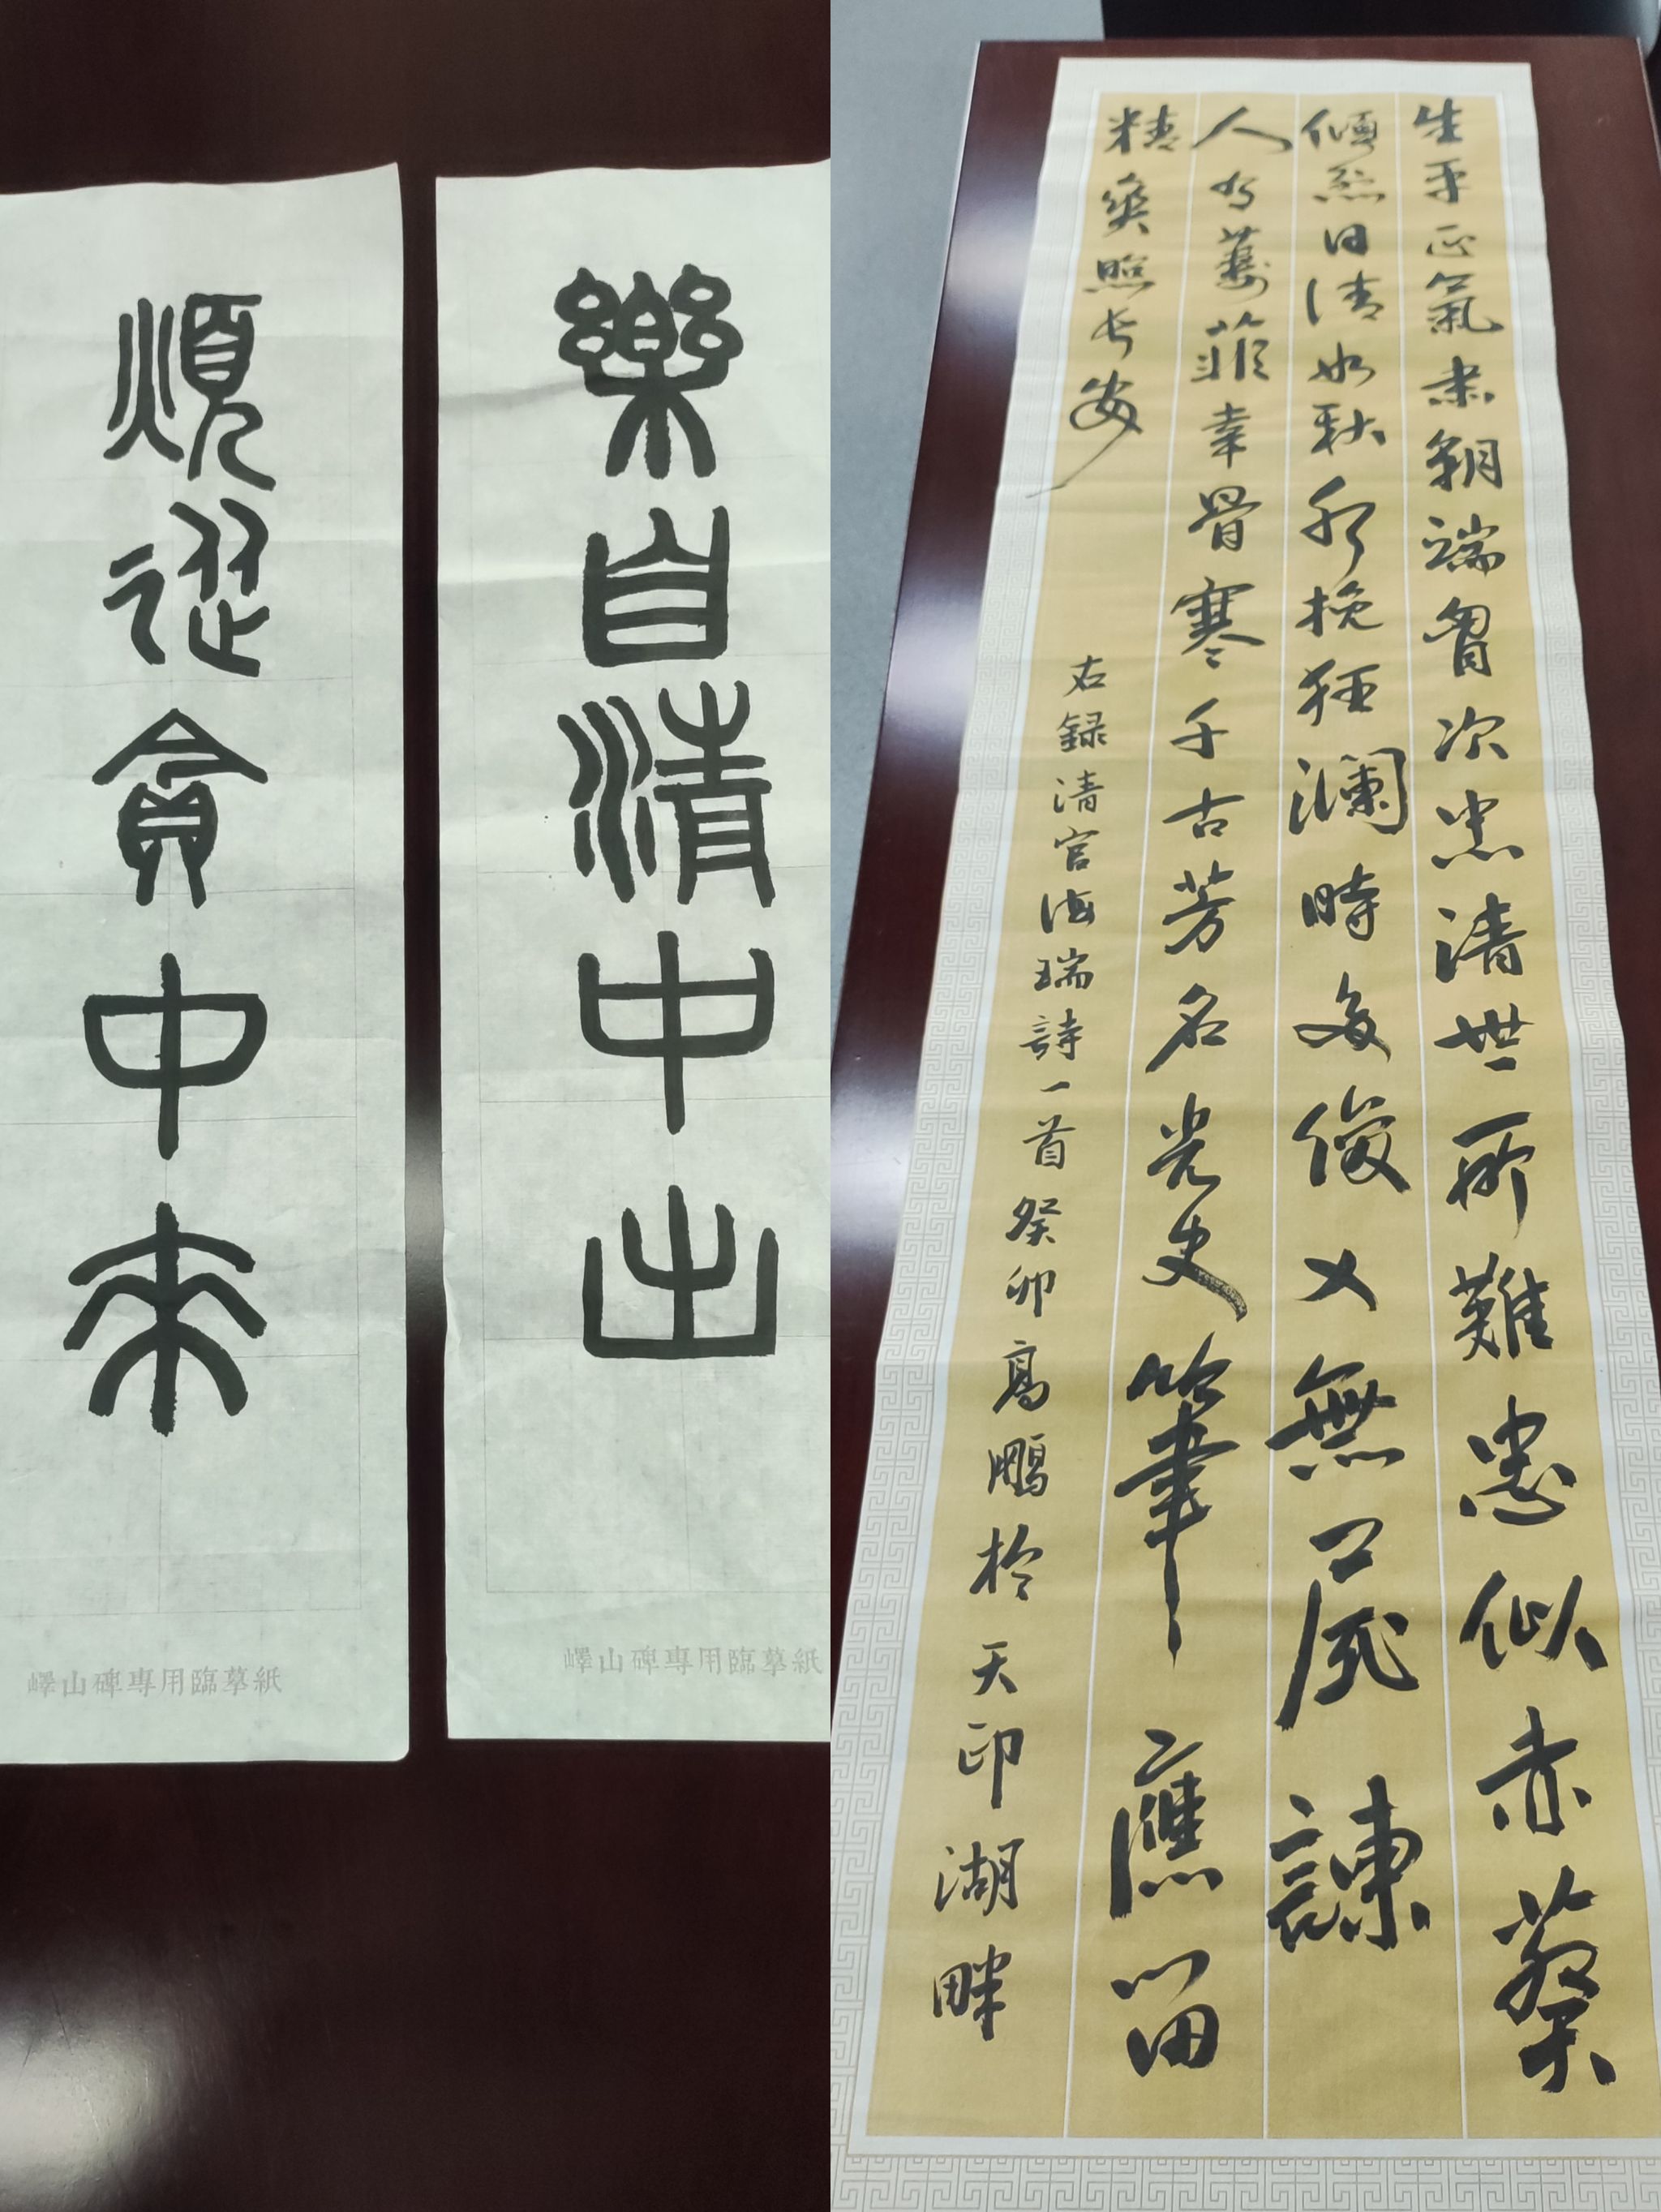 樂自清中出
嶧山碑專用臨摹紙
煩從貪中來
嶧山碑專用臨摹紙
生平正氣肅朝端胷次光清世所難忠似赤葵
傾烈日清如秋水挽狂瀾時多俊乂無尸諫
人為萋菲幸骨寒千古芳名光史筆應留
精爽照長安
右録清官海瑞詩一首癸卯高鵬於天印湖畔